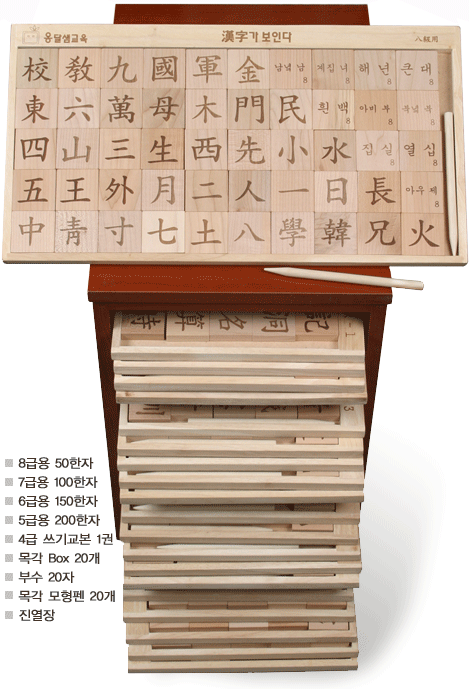 옹달샘교육 漢字가 보인다 八級用
校 敎 九 國 軍 金 남녘 남 8 계집 녀 8 해 년 8 큰 대 8
東 六 萬 母 木 門 民 흰 백 8 아비 부 8 북녘 북 8
四 山 三 生 西 先 小 水 집 실 8 열 십 8
五 王 外 月 二 人 一 日 長 아우 제 8
中 靑 寸 七 土 八 學 韓 兄 火
時 算 名 洞 記 1
3
8급용 50한자
7급용 100한자
6급용 150한자
5급용 200한자
4급 쓰기교본 1권
목각 Box 20개
부수 20자
목각 모형펜 20개
진열장